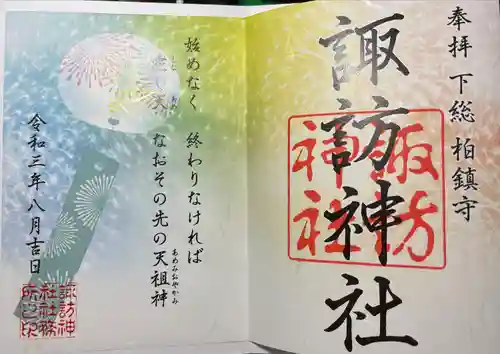 奉拝 下総 柏鎮守
諏訪神社
諏訪神社
始めなく 終わりなければ
なおその先の天祖神
あめみおやかみ
令和三年八月吉日
諏訪神
社社務
所之印